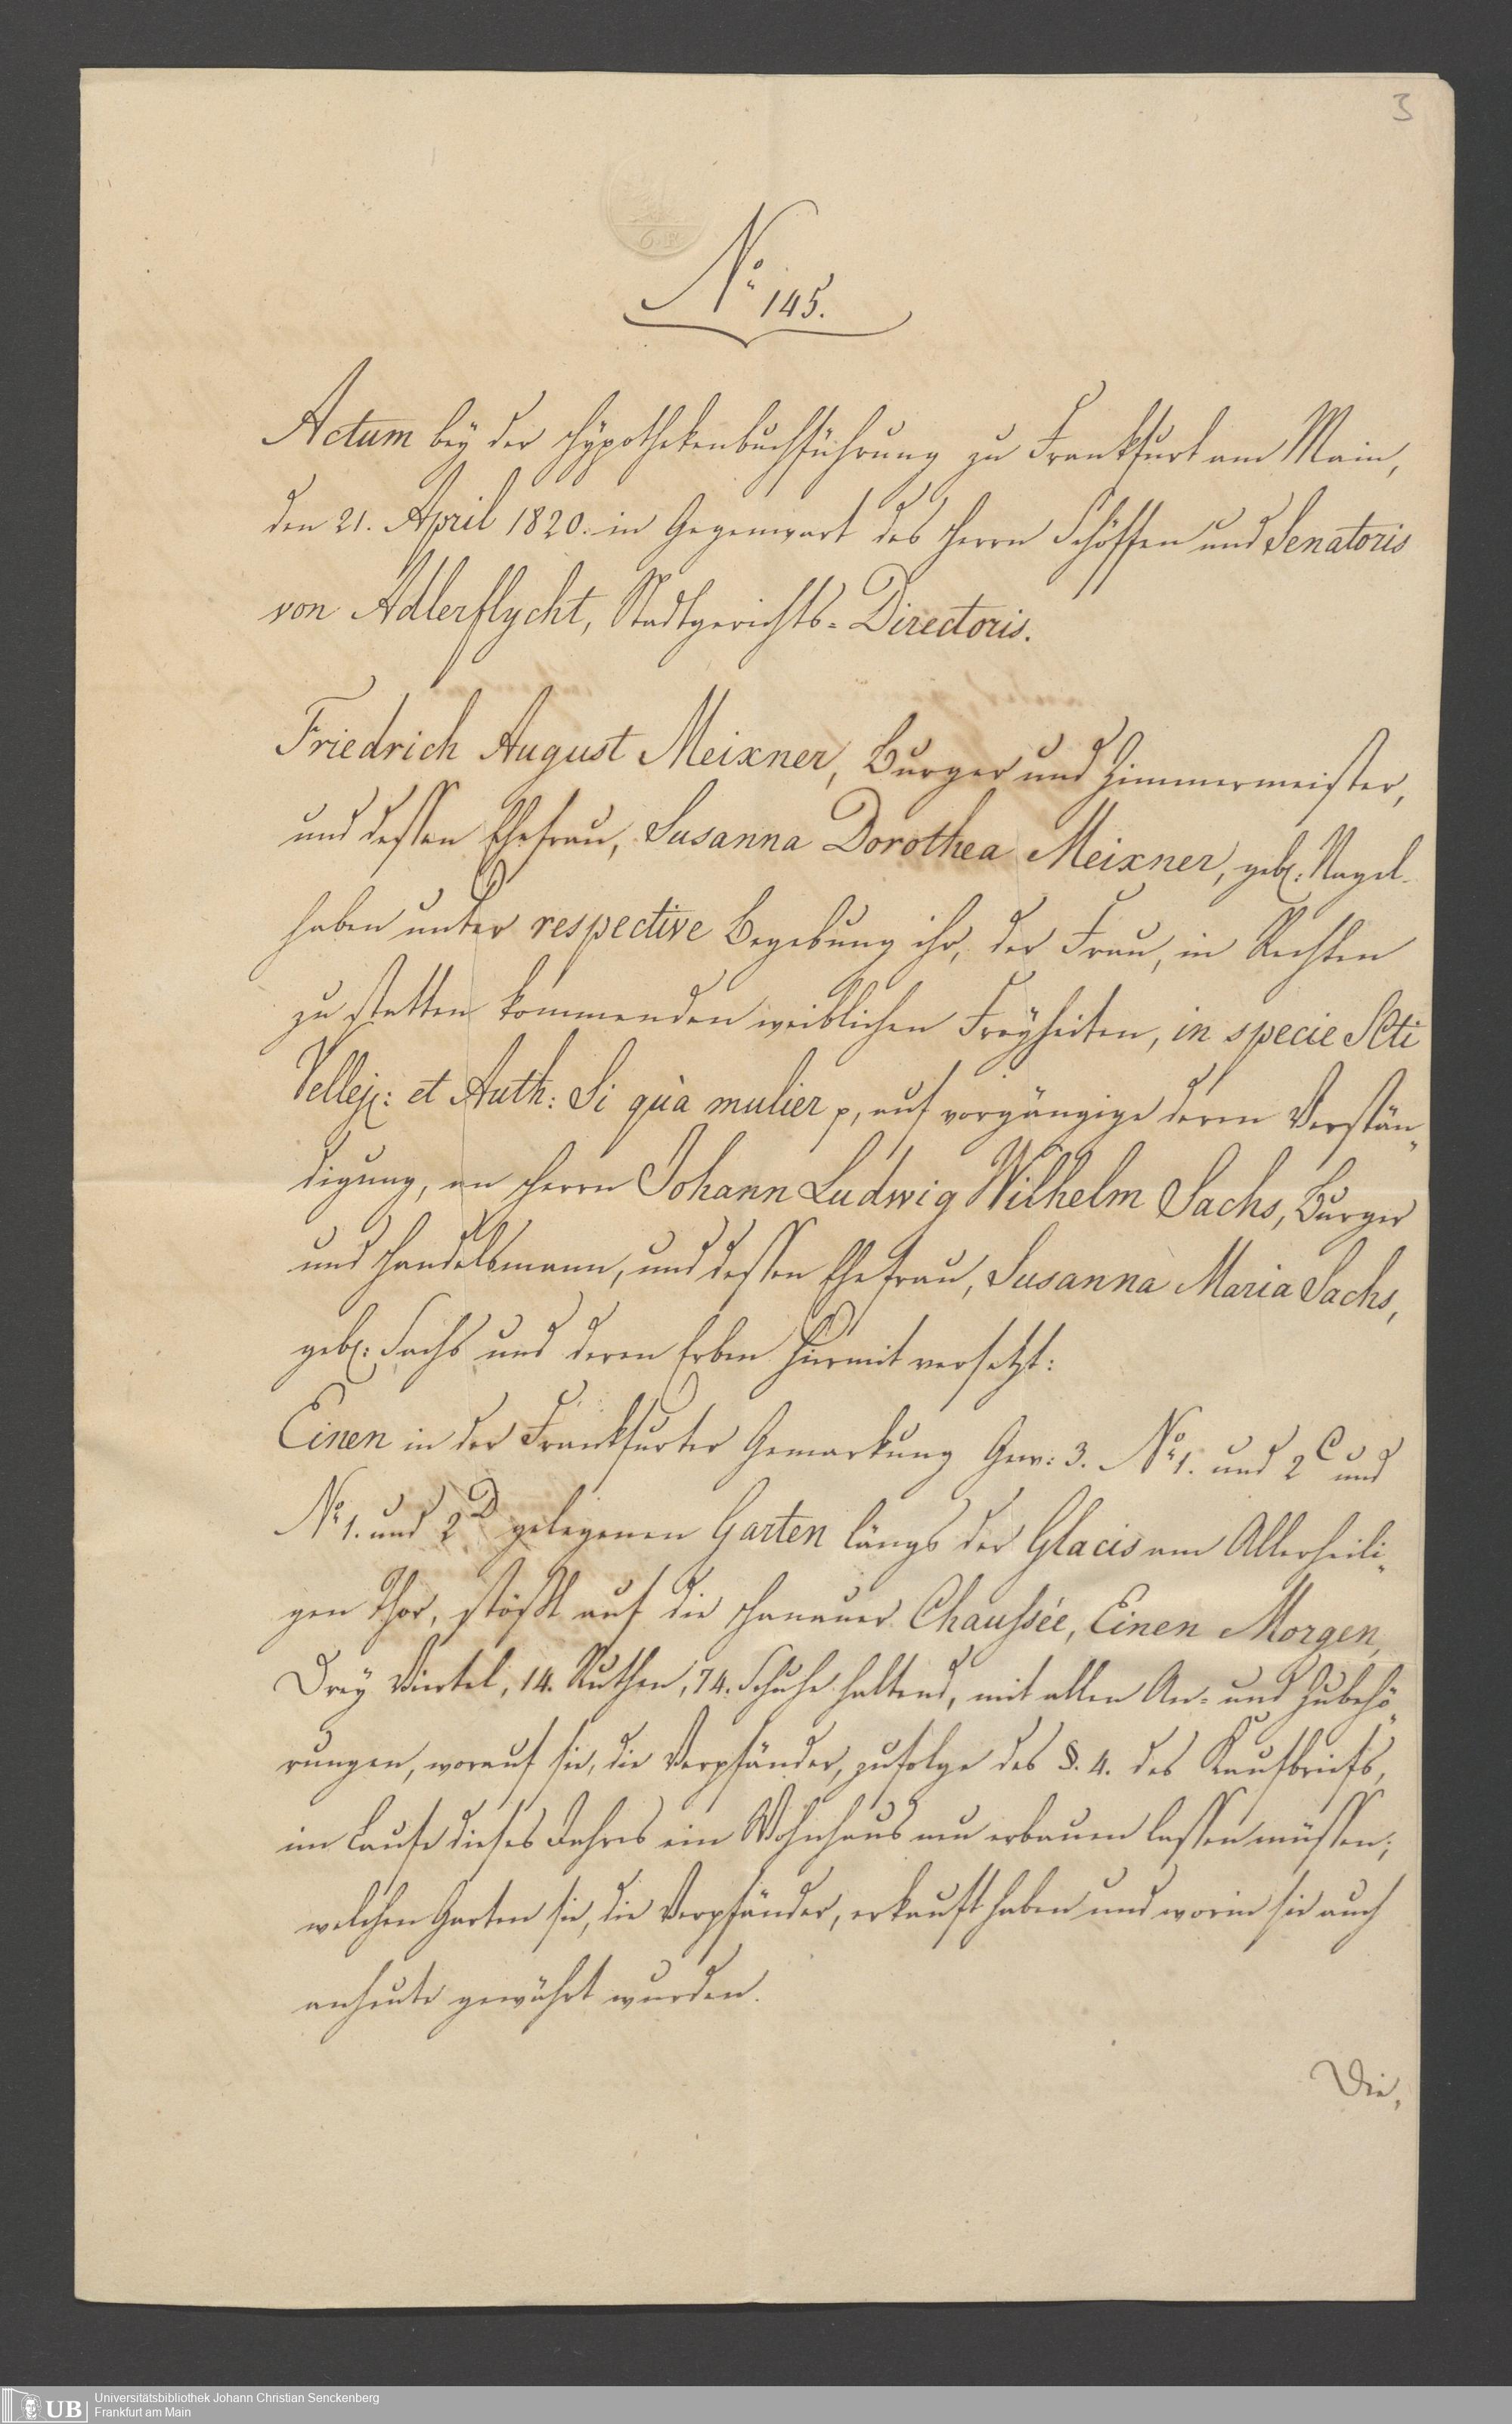 3
No 145.
Actum bey der Hÿpothekenbuchführung zu Frankfurt am Main,
den 21. April 1820. in Gegenwart des Herrn Schöffen und Senatoris
von Adlerflycht, Stadtgerichts-Directoris.
Friedrich August Meixner, Burger und Zimmermeister,
und dessen Ehefrau, Susanna Dorothea Meixner, geb: Nagel
haben unter respective Begebung ihr, der Frau, in Rechten
zu statten kommenden weiblichen Freyheiten, in specie SCti
Vellej: et Auth: Si quà mulier p, auf vorgängige deren Verstän„
digung, an Herrn Johann Ludwig Wilhelm Sachs, Burger
und Handelsmann, und dessen Ehefrau, Susanna Maria Sachs,
geb: Sachs und deren Erben hiermit versetzt:
Einen in der Frankfurter Gemarkung Gew: 3. No 1. und 2 C und
No 1. und 2 D gelegenen Garten längs der Glacis am Allerheili„
gen Thor, stößt auf die Hanauer Chaussée, Einen Morgen,
Drey Viertel, 14. Ruthen, 74. Schuhe haltend, mit allen An- und Zubehö„
rungen, worauf sie, die Verpfänder, zufolge des §. 4. des Kaufbriefs,
im Laufe dieses Jahres ein Wohnhaus neu erbauen lassen müssen;
welchen Garten sie, die Verpfänder, erkauft haben und worin sie auch
anheute gewährt wurden.
Die,
UB
Universitätsbibliothek Johann Christian Senckenberg
Frankfurt am Main